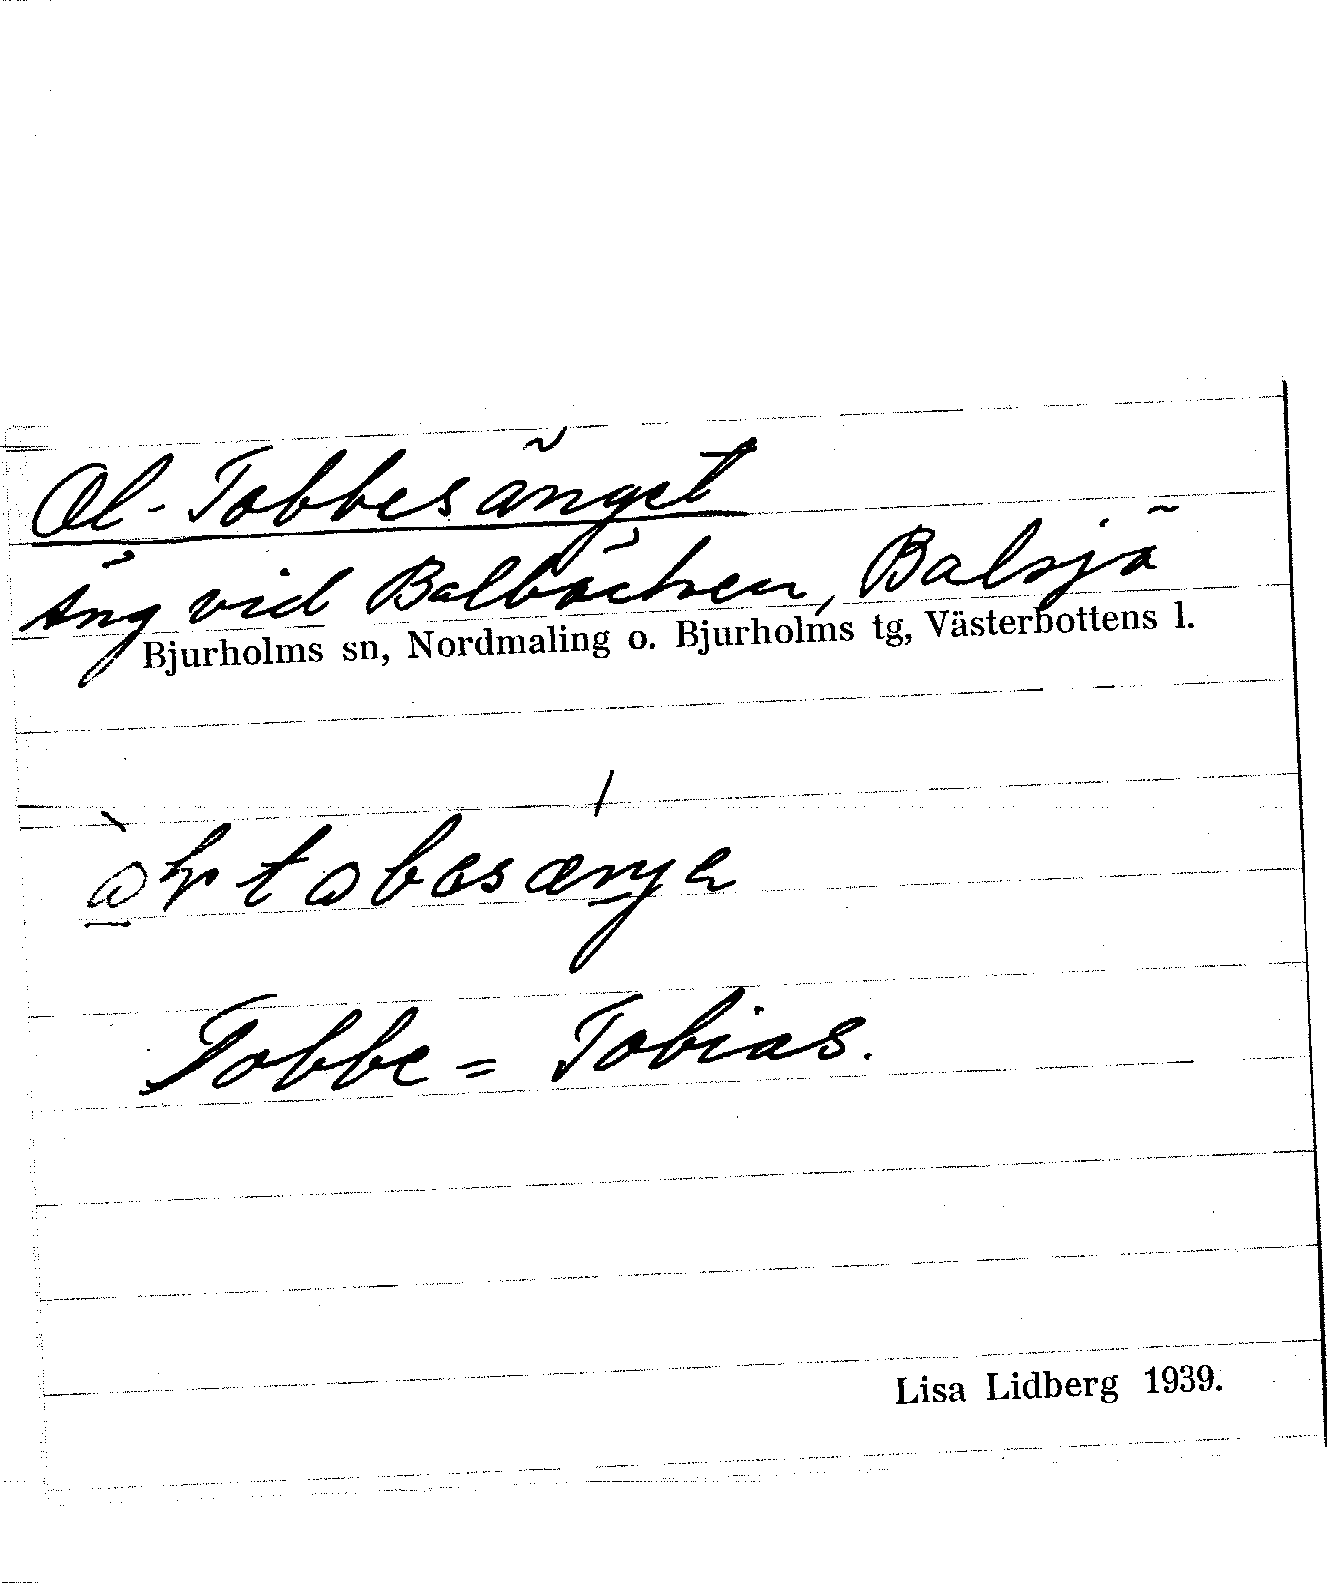 Ol-Tobbesänget
Äng vid Balbäcken, Balsjö
Bjurholms sn, Nordmaling o. Bjurholms tg, Västerbottens l.
Tobbe = Tobias.
Lisa Lidberg 1939.